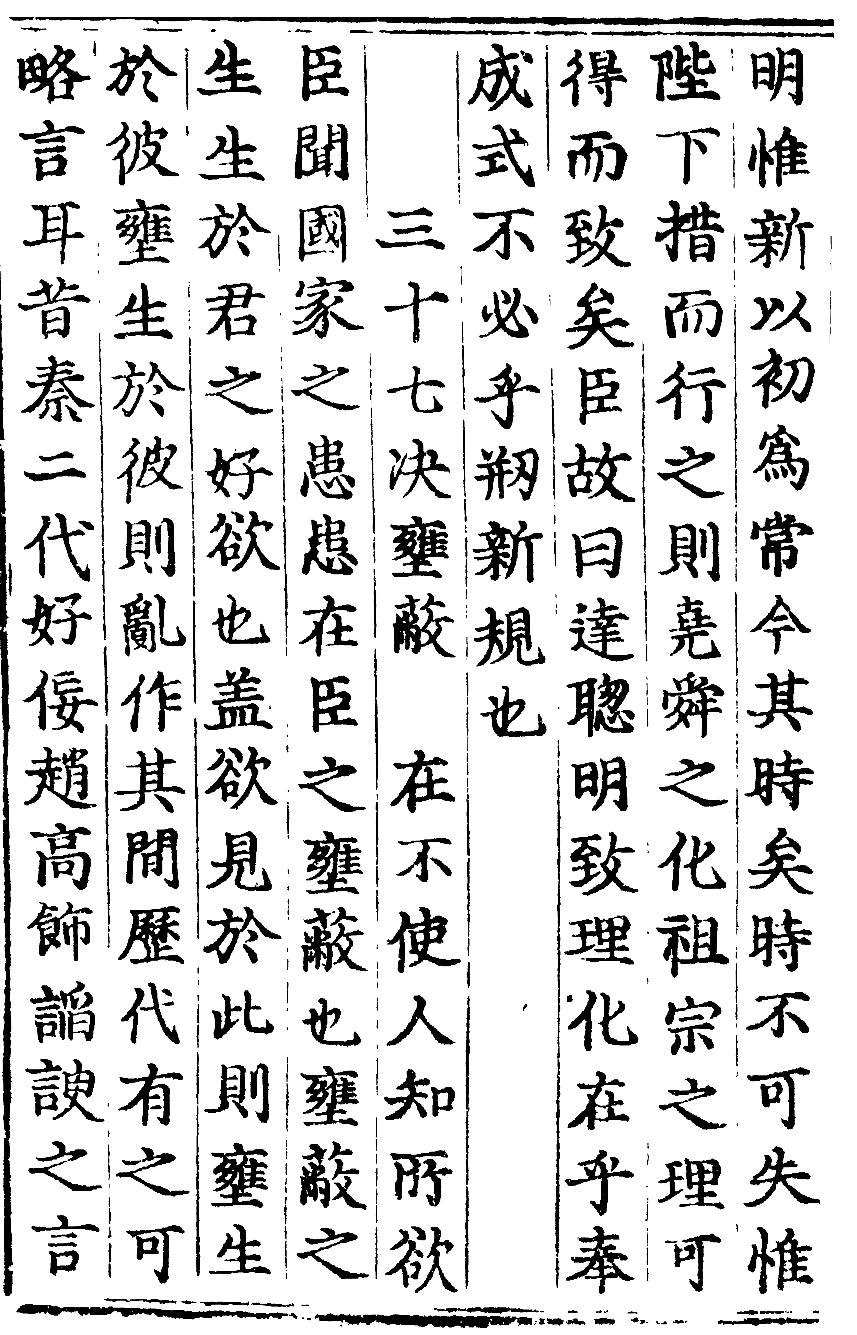 明惟新以初爲常今其時矣時不可失惟
陛下措而行之則堯舜之化祖宗之理可
得而致矣臣故曰達聦明致理化在乎奉
成式不必乎剏新規也
三十七決壅蔽　在不使人知所欲
臣聞國家之患患在臣之壅蔽也壅蔽之
生生於君之好欲也盖欲見於此則壅生
於彼壅生於彼則亂作其間歷代有之可
略言耳昔秦二代好佞趙高飾謟諛之言